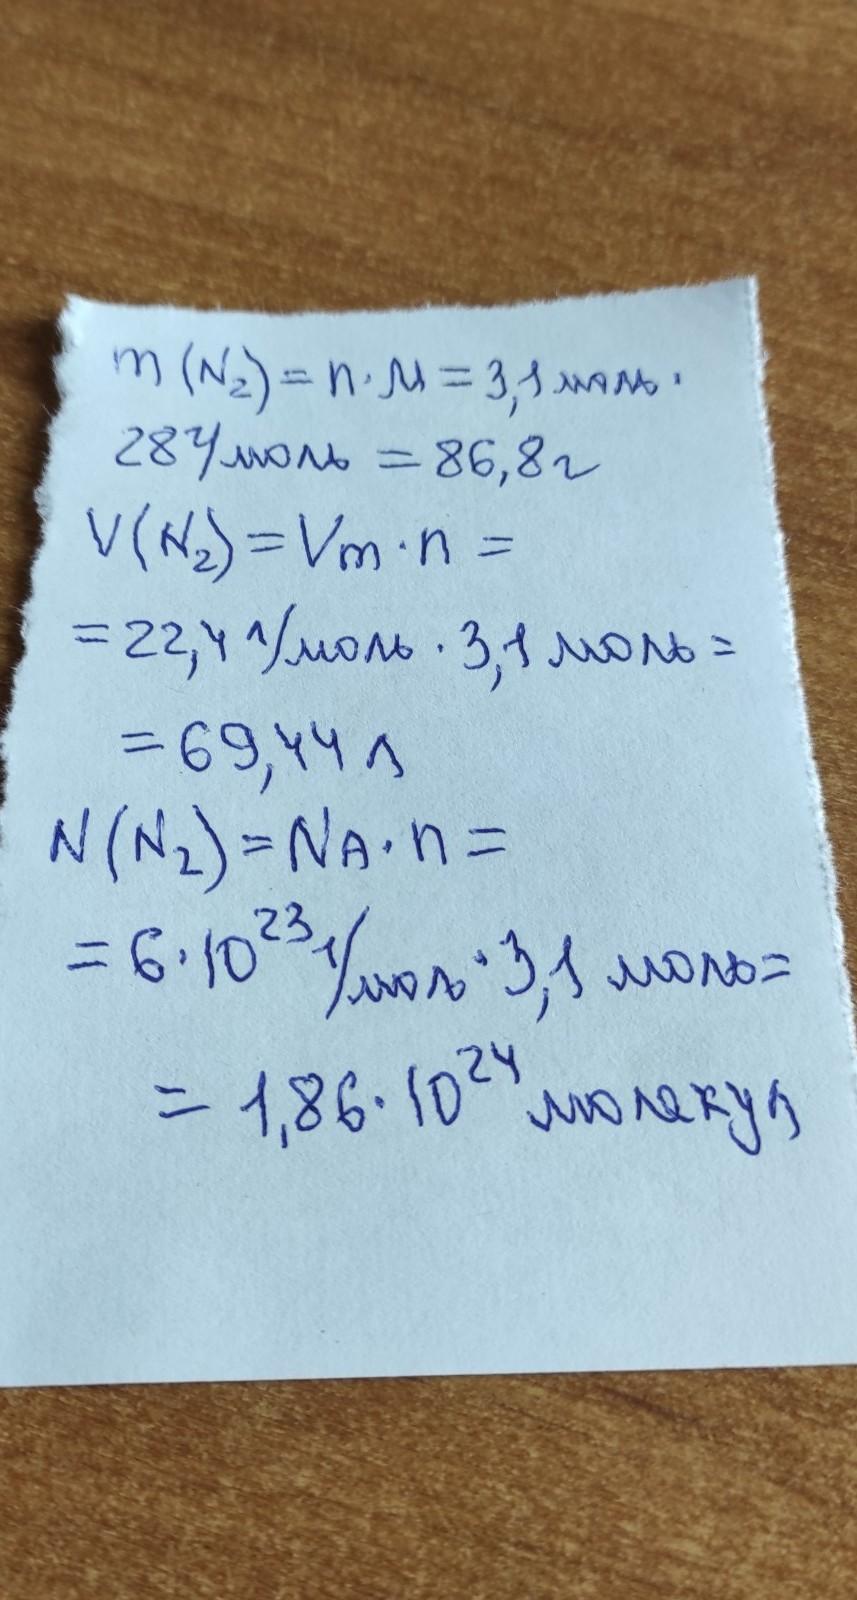 m(N₂) = n · M = 3,1 моль ·
28 г/моль = 86,8 г
V(N₂) = Vm · n =
= 22,4 л/моль · 3,1 моль =
= 69,44 л
N(N₂) = NA · n =
= 6 · 10²³ 1/моль · 3,1 моль =
= 1,86 · 10²⁴ молекул